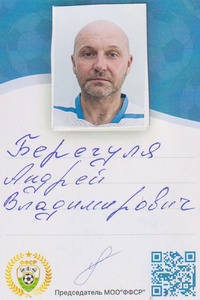 Берегуля
Андрей
Владимирович
Председатель МОО"ФФСР"